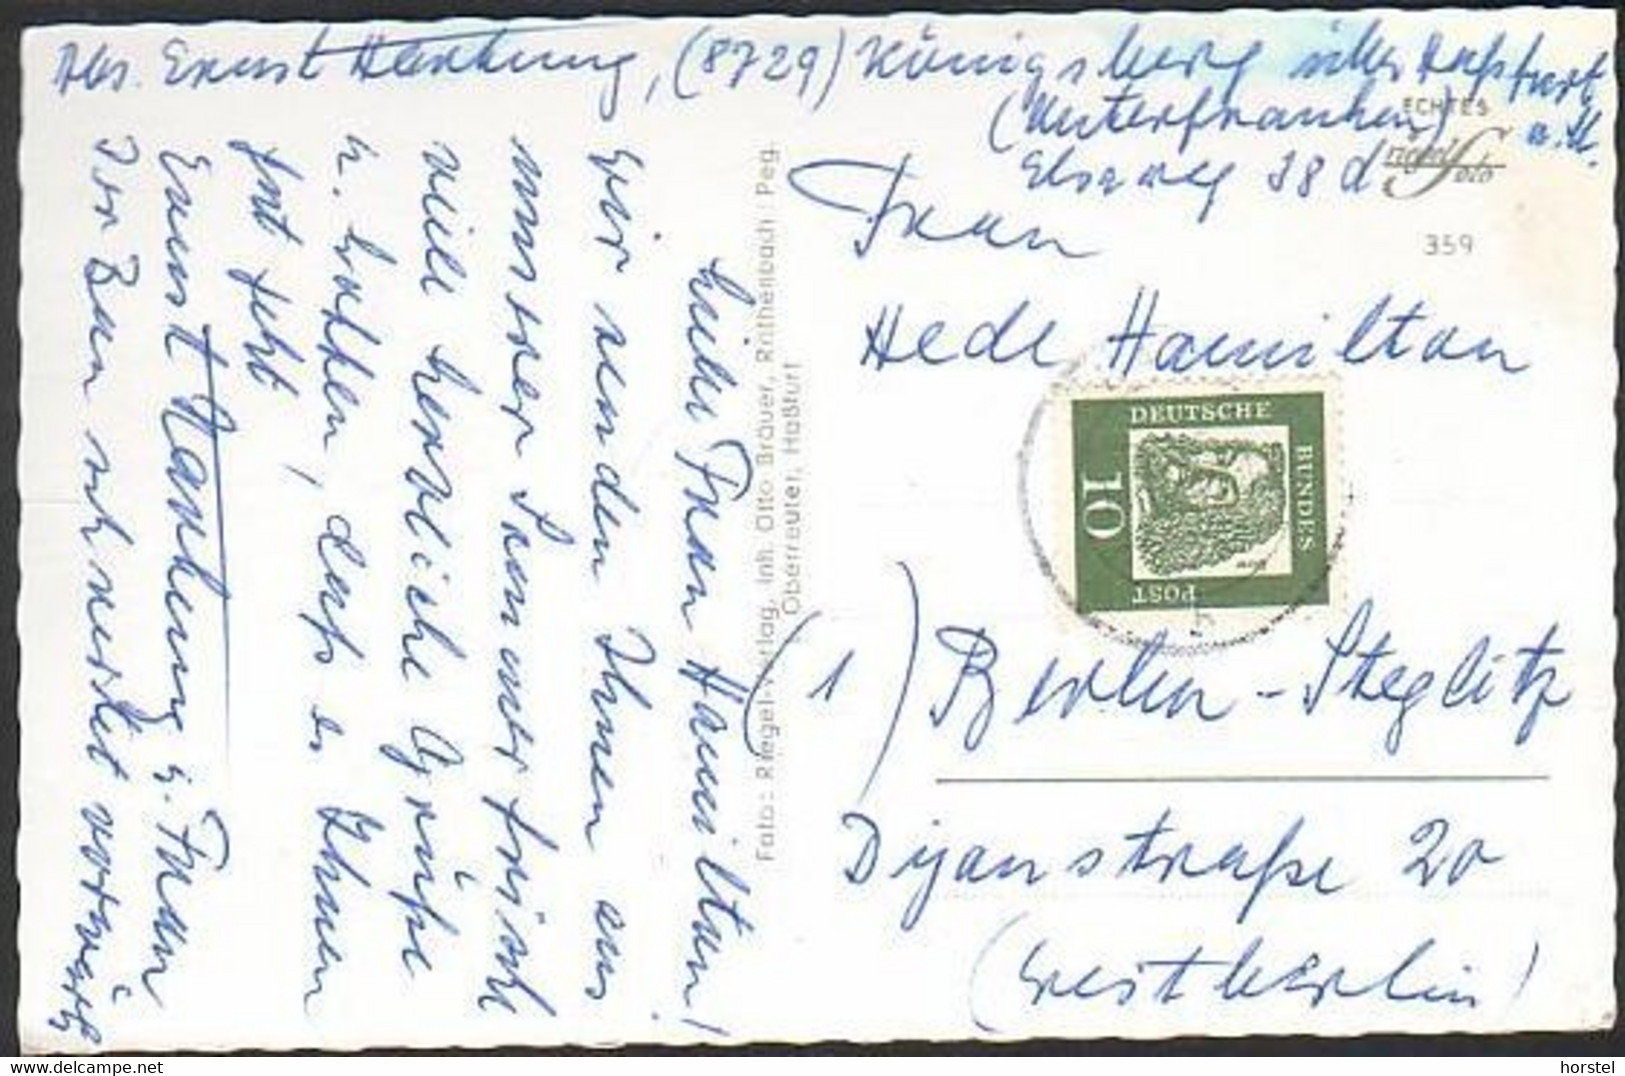 Abs. Ernst Hartung, (8729) Königsberg über Haßfurt
(Unterfranken) a. M.
Elsaweg 38 d
ECHTES
Foto
359
Frau
Hede Hamilton
DEUTSCHE
BUNDES
POST
10
(1) Berlin-Steglitz
Dijonstraße 20
(Westberlin)
Foto: Riegel-Verlag, Inh. Otto Bräuer, Röthenbach Peg.
Oberreuter, Haßfurt
Liebe Frau Hamilton!
Wir senden Ihnen aus
unsrer Sommerfrische
viele herzliche Grüße
u. hoffen, daß es Ihnen
gut geht
Ernst Hartung u. Frau
Der Bau schreitet vorwärts
www.delcampe.net
horstel